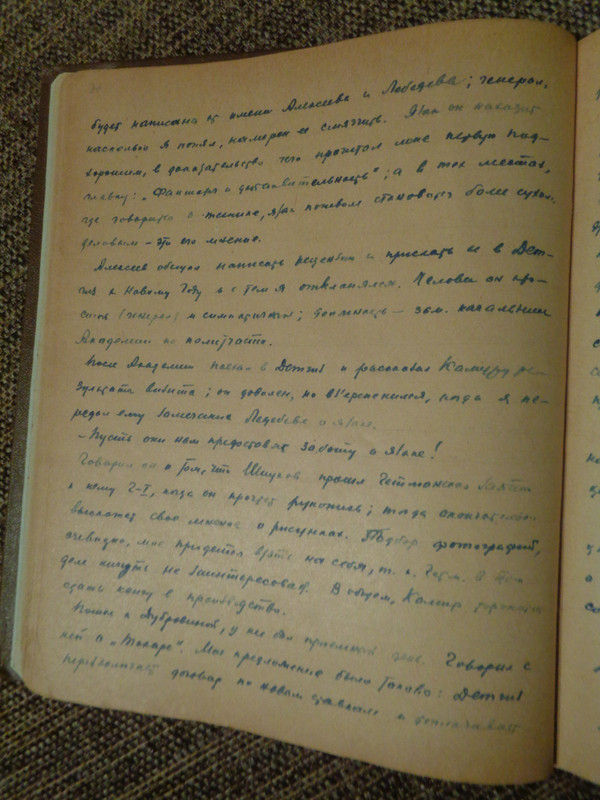 будет написана от имени Алексеева и Лебедева; генерал,
насколько я понял, намерен ее смягчить. Язык он находит
хорошим, в доказательство чего прочитал мне первую под-
главку: „Фантазия и действительность"; а в тех местах,
где говорится о технике, язык поневоле становится более сухим,
деловым – это его мнение.
Алексеев обещал написать рецензию и прислать ее в Дет-
гиз к Новому Году и с тем я откланялся. Человек он про-
стой (генерал) и симпатичный; должность – зам. начальника
Академии по политчасти.
После Академии поехал в Детгиз и рассказал Камиру ре-
зультаты визита; он доволен, но взъерепенился, когда я пе-
редал ему замечание Лебедева о языке.
– Пусть они нам предоставят заботу о языке!
Говорил он о том, что Шмуков просил Гетманского зайти
к нему 2-I, когда он прочтет рукопись; тогда окончательно
выскажет свое мнение о рисунках. Подбор фотографий,
очевидно, мне придется взять на себя, т. к. Гетм. в этом
деле ничуть не заинтересован. В общем, Камир торопится
сдать книгу в производство.
Потом к Дубровиной, у нее был приемный день. Говорил с
ней о „Токаре". Мое предложение было таково: Детгиз
перезаключает договор по новым ставкам и доплачивает